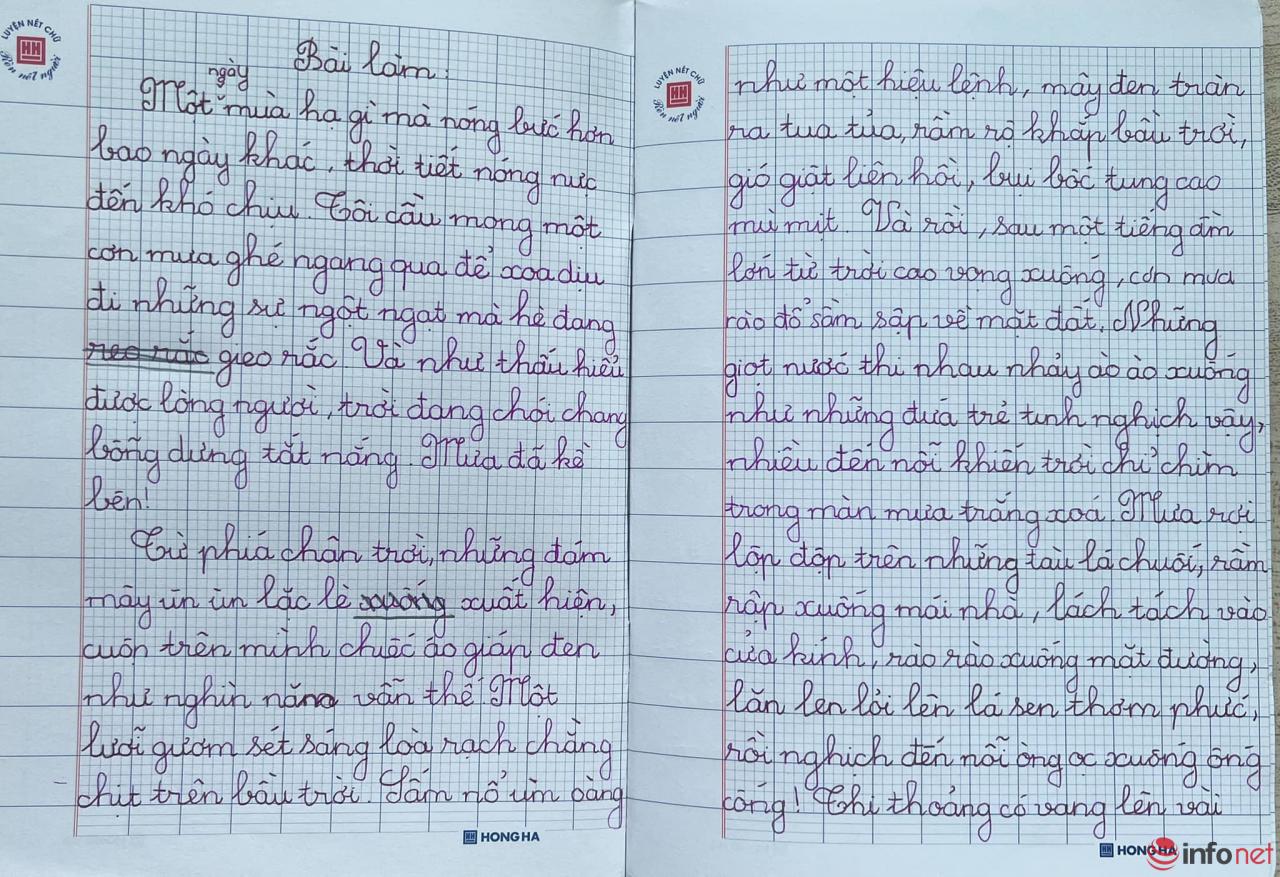 LUYỆN NÉT CHỮ
HH
Rèn nết người
Bài làm:
ngày
Một mùa hạ gì mà nóng bức hơn
bao ngày khác, thời tiết nóng nực
đến khó chịu. Tôi cầu mong một
cơn mưa ghé ngang qua để xoa dịu
đi những sự ngột ngạt mà hè đang
reo rắc gieo rắc. Và như thấu hiểu
được lòng người, trời đang chói chang
bỗng dưng tắt nắng. Mưa đã kề
bên!
Từ phiá chân trời, những đám
mây ùn ùn lặc lè xuống xuất hiện,
cuốn trên mình chiếc áo giáp đen
như nghìn năng vẫn thế. Một
lưỡi gươm sét sáng loà rạch chằng
chịt trên bầu trời. Sấm nổ ùm oàng
HH HONG HA
LUYỆN NÉT CHỮ
HH
Rèn nết người
như một hiệu lệnh, mây đen tràn
ra tua tủa, rầm rộ khắp bầu trời,
gió giật liên hồi, bụi bốc tung cao
mù mịt. Và rồi, sau một tiếng ầm
lớn từ trời cao vọng xuống, cơn mưa
rào đổ sầm sập về mặt đất. Những
giọt nước thi nhau nhảy ào ào xuống
như những đứa trẻ tinh nghịch vậy,
nhiều đến nỗi khiến trời chỉ chìm
trong màn mưa trắng xoá. Mưa rơi
lộp độp trên những tàu lá chuối, rầm
rập xuống mái nhà, lách tách vào
cửa kính, rào rào xuống mặt đường,
lăn len lỏi lên lá sen thơm phức,
rồi nghịch đến nỗi òng ọc xuống ống
cống! Thi thoảng có vang lên vài
HH HONG HA
infonet